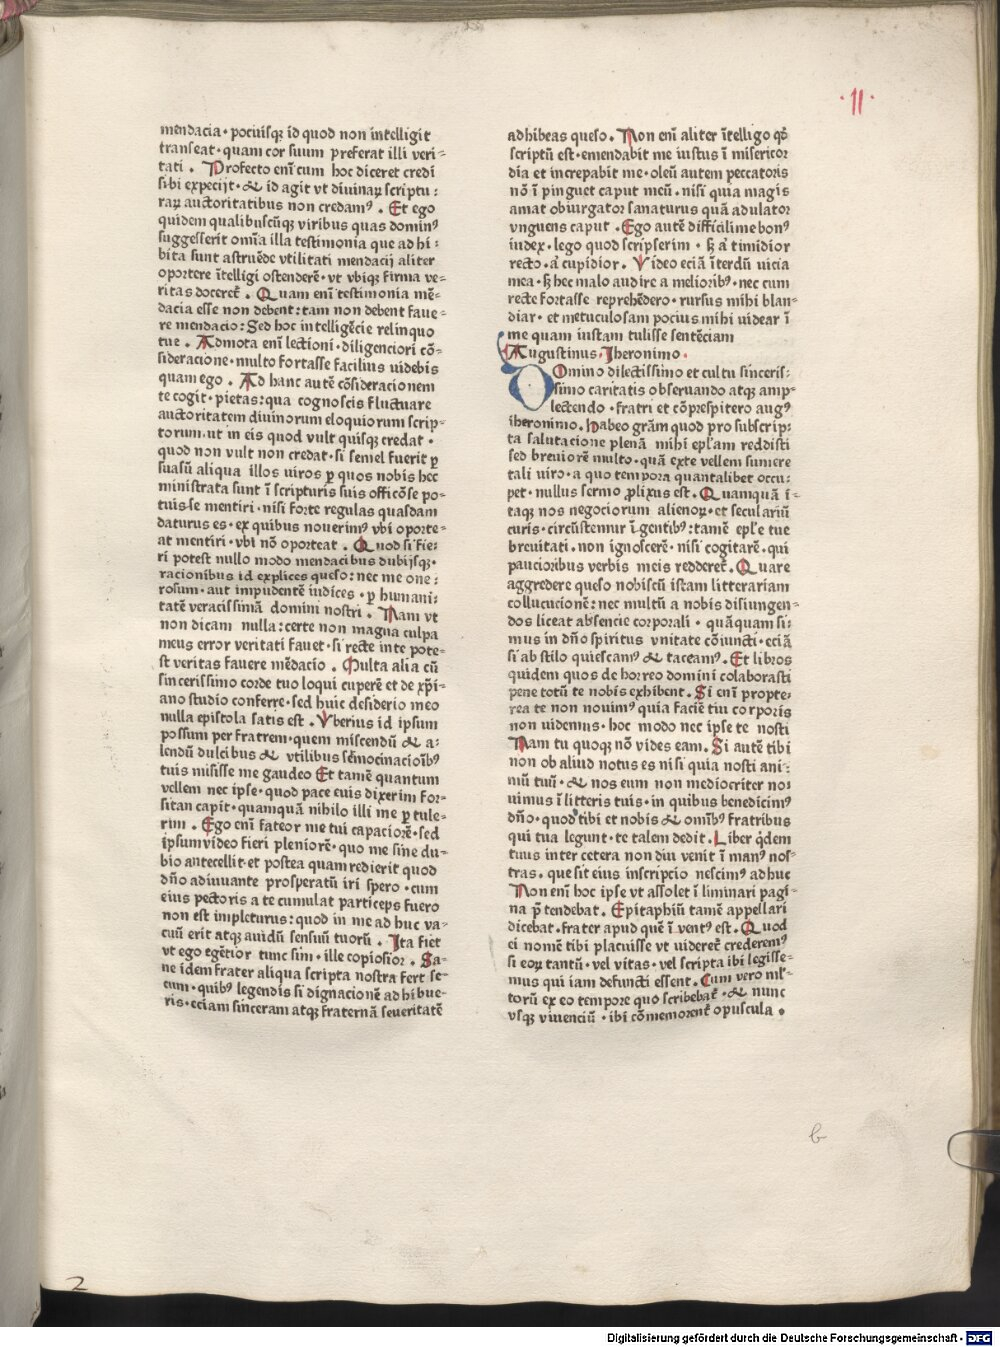 ·11·
mendacia · pociusq̃ id quod non intelligit
transeat · quam cor suum preferat illi veri⸗
tati . Profecto enĩ cum hoc diceret credi
sibi expecijt · & id agit vt diuinaꝝ scriptu⸗
raꝝ auctoritatibus non credamꝰ . Et ego
quidem qualibuscũqꝫ viribus quas dominꝰ
suggesserit omĩa illa testimonia que ad hi⸗
bita sunt astruẽde vtilitati mendacij aliter
oportere ĩtelligi ostenderẽ · vt vbiqꝫ firma ve⸗
ritas docereť . Quam enĩ testimonia mẽ⸗
dacia esse non debent : tam non debent faue⸗
re mendacio : Sed hoc intelligẽcie relinquo
tue . Admota enĩ lectioni · diligenciori cõ⸗
sideracione · multo fortasse facilius uidebis
quam ego . Ad hanc autẽ cõsideracionem
te cogit · pietas : qua cognoscis fluctuare
auctoritatem diuinorum eloquiorum scrip⸗
torum · ut in eis quod vult quisqꝫ credat ·
quod non vult non credat · si semel fuerit ꝑ
suasũ aliqua illos uiros ꝑ quos nobis hec
ministrata sunt ĩ scripturis suis officõse po⸗
tuisse mentiri · nisi forte regulas quasdam
daturus es · ex quibus nouerimꝰ vbi oporte⸗
at mentiri · vbi nõ oporteat . Quod si fie⸗
ri potest nullo modo mendacibus dubijsqꝫ ·
racionibus id explices queso : nec me one⸗
rosum · aut impudentẽ iudices · ꝑ humani⸗
tatẽ veracissimã domini nostri . Nam vt
non dicam nulla : certe non magna culpa
meus error veritati fauet · si recte in te pote⸗
st veritas fauere mẽdacio . Multa alia cũ
sincerissimo corde tuo loqui cuperẽ et de xp̃i⸗
ano studio conferre · sed huic desiderio meo
nulla epistola satis est . Vberius id ipsum
possum per fratrem · quem miscendũ & a⸗
lendũ dulcibus & vtilibus sẽmocinacioĩbꝰ
tuis misisse me gaudeo Et tamẽ quantum
vellem nec ipse · quod pace euis dixerim for⸗
sitan capit · quamquã nihilo illi me ꝑ tule⸗
rim . Ego enĩ fateor me tui capaciorẽ · sed
ipsum video fieri pleniorẽ · quo me sine du⸗
bio antecellit · et postea quam redierit quod
dño adiuuante prosperatũ iri spero · cum
eius pectoris a te cumulat particeps fuero
non est impleturus : quod in me ad huc va⸗
cuũ erit atqꝫ auidũ sensuũ tuorũ . Ita fiet
vt ego egẽtior tunc sim · ille copiosior . Sa⸗
ne idem frater aliqua scripta nostra fert se⸗
cum · quibꝰ legendis si dignacionẽ ad hibue⸗
ris · eciam sinceram atqꝫ fraternã seueritatẽ
adhibeas queso . Non enĩ aliter ĩtelligo qd̃
scriptũ est · emendabit me iustus ĩ misericor
dia et increpabit me · oleũ autem peccatoris
nõ ĩ pinguet caput meũ · nisi quia magis
amat obiurgator sanaturus quã adulator
vnguens caput . Ego autẽ difficilime bonꝰ
iudex · lego quod scripserim · sꝫ aĩ timidior
recto · aĩ cupidior . Video eciã ĩterdũ uicia
mea · sꝫ hec malo audire a melioribꝰ · nec cum
recte fortasse reprehẽdero · rursus mihi blan⸗
diar · et metuculosam pocius mihi videar ĩ
me quam iustam tulisse sentẽciam
Augustinus · Iheronimo ·
Domino dilectissimo et cultu sinceris⸗
simo caritatis obseruando atqꝫ amp⸗
lectendo · fratri et cõpresbitero augꝰ
iheronimo . Habeo grãm quod pro subscrip⸗
ta salutacione plenã mihi epl̃am reddisti
sed breuiorẽ multo · quã exte vellem sumere
tali uiro · a quo tempora quantalibet occu⸗
pet · nullus sermo ꝓlixus est . Quamquã ĩ⸗
taqꝫ nos negociorum alienoꝝ · et seculariũ
curis · circũstemur ĩgentibꝰ : tamẽ epl̃e tue
breuitati · non ignoscerẽ · nisi cogitarẽ · qui
paucioribus verbis meis reddereť . Quare
aggredere queso nobiscũ istam litterariam
collucucionẽ : nec multũ a nobis disiungen⸗
dos liceat absencie corporali · quãquam si⸗
mus in dño spiritus vnitate cõiuncti · eciã
si ab stilo quiescamꝰ & taceamꝰ . Et libros
quidem quos de horreo domini colaborasti
pene totũ te nobis exhibent . Si enĩ propte⸗
rea te non nouimꝰ quia faciẽ tui corporis
non uidemus · hoc modo nec ipse te nosti
Nam tu quoqꝫ nõ vides eam . Si autẽ tibi
non ob aliud notus es nisi quia nosti ani⸗
mũ tuũ · & nos eum non mediocriter no⸗
uimus ĩ litteris tuis · in quibus benedicimꝰ
dño · quod tibi et nobis & omĩbꝰ fratribus
qui tua legunt · te talem dedit . Liber qĩdem
tuus inter cetera non diu venit ĩ manꝰ nos⸗
tras · que sit eius inscripcio nescimꝰ adhuc
Non enĩ hoc ipse vt assolet ĩ liminari pagi⸗
na p̃ tendebat . Epitaphiũ tamẽ appellari
dicebat · frater apud quẽ ĩ ventꝰ est . Quod
ei nomẽ tibi placuisse vt uidereť crederemꝰ
si eoꝝ tantũ · vel vitas · vel scripta ibi legisse⸗
mus qui iam defuncti essent . Cum vero ml̃⸗
torũ ex eo tempore quo scribebať · & nunc
vsqꝫ viuenciũ · ibi cõmemorenť opuscula ·
b
2
Digitalisierung gefördert durch die Deutsche Forschungsgemeinschaft - DFG